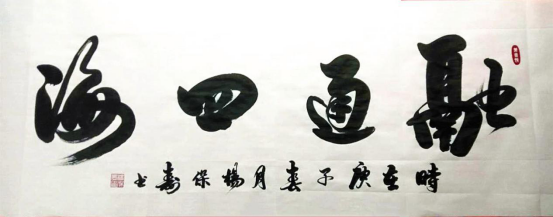 融通四海
時在庚子春月楊保壽书